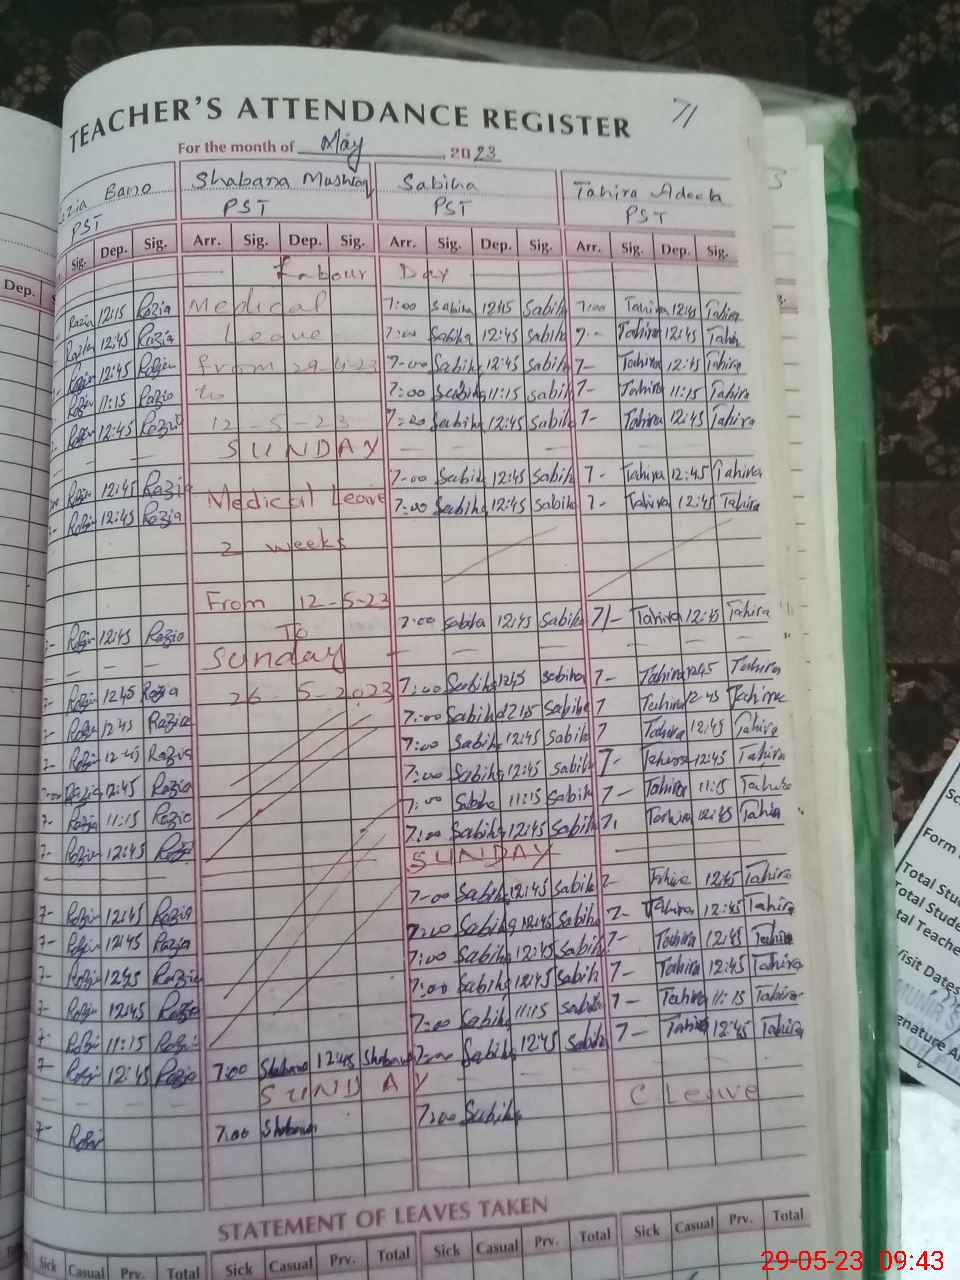 TEACHER'S ATTENDANCE REGISTER 71
For the month of May, 2023
Bano Shabana Mushtaq Sabiha Tahira Adeela
PST PST PST PST
Dep. Sig. Dep. Sig. Arr. Sig. Dep. Sig. Arr. Sig. Dep. Sig. Arr. Sig. Dep. Sig.
Labour Day
Razia 12:15 Razia Medical 7:00 Sabiha 12:45 Sabiha 7:00 Tahira 12:45 Tahira
Razia 12:45 Razia Leave 7:00 Sabiha 12:45 Sabiha 7- Tahira 12:45 Tahira
Razia 12:45 Razia From 29-4-23 7-00 Sabiha 12:45 Sabiha 7- Tahira 12:45 Tahira
Razia 11:15 Razia to 7:00 Sabiha 11:15 Sabiha 7- Tahira 11:15 Tahira
Razia 12:45 Razia 12-5-23 Sabiha 12:45 Sabiha 7- Tahira 12:45 Tahira
SUNDAY
Razia 12:45 Razia 7-00 Sabiha 12:45 Sabiha 7- Tahira 12:45 Tahira
Razia 12:45 Razia Medical Leave 7:00 Sabiha 12:45 Sabiha 7- Tahira 12:45 Tahira
2 weeks
From 12-5-23
7- Razia 12:45 Razia To 7:00 Sabiha 12:45 Sabiha 7/- Tahira 12:45 Tahira
Sunday
7- Razia 12:45 Razia 26-5-2023 7:00 Sabiha 12:45 Sabiha 7- Tahira 12:45 Tahira
7- Razia 12:45 Razia 7:00 Sabiha 12:15 Sabiha 7 Tahira 12:45 Tahira
7- Razia 12:45 Razia 7:00 Sabiha 12:45 Sabiha 7 Tahira 12:45 Tahira
7:00 Razia 12:45 Razia 7:00 Sabiha 12:45 Sabiha 7- Tahira 12:45 Tahira
7- Razia 11:15 Razia 7:00 Sabiha 11:15 Sabiha 7- Tahira 11:15 Tahira
7- Razia 12:45 Razia 7:00 Sabiha 12:45 Sabiha 7, Tahira 12:45 Tahira
SUNDAY
7- Razia 12:45 Razia 7-00 Sabiha 12:45 Sabiha 7- Tahira 12:45 Tahira
7- Razia 12:45 Razia 7:00 Sabiha 12:45 Sabiha 7- Tahira 12:45 Tahira
7- Razia 12:45 Razia 7:00 Sabiha 12:45 Sabiha 7- Tahira 12:45 Tahira
7- Razia 12:45 Razia 7:00 Sabiha 12:45 Sabiha 7- Tahira 12:45 Tahira
7- Razia 11:15 Razia 7:00 Sabiha 11:15 Sabiha 7- Tahira 11:15 Tahira
7- Razia 12:45 Razia 7:00 Shabana 12:45 Shabana 7:00 Sabiha 12:45 Sabiha 7- Tahira 12:45 Tahira
SUNDAY
7- Razia 7:00 Shabana 7:00 Sabiha C Leave
STATEMENT OF LEAVES TAKEN
Sick Casual Prv. Total Sick Casual Prv. Total Sick Casual Prv. Total Sick Casual Prv. Total
Form
Total
Total
Visit Dates
29-05-23 09:43